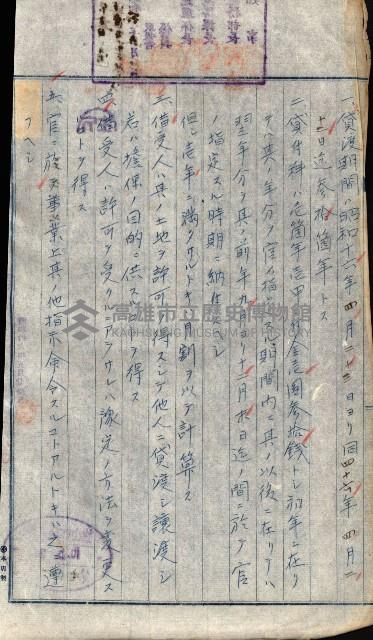 一、貸渡期間ハ昭和十六年四月二十三日ヨリ同四十六年四月二
十二日迄参拾箇年トス
二、貸付料ハ壱箇年壱甲ニ付金壱圓参拾銭トシ初年ニ在リ
テハ其ノ年分ヲ官ノ指定スル期間内ニ其ノ以後ニ在リテハ
翌年分ヲ其ノ前年九月ヨリ十二月末日迄ノ間ニ於テ官
ノ指定スル時期ニ納付スベシ
但シ壱年ニ満タサルトキハ月割ヲ以テ計算ス
三、借受人ハ其ノ土地ヲ許可ヲ得スシテ他人ニ貸渡シ譲渡シ
若ハ擔保ノ目的ニ供スルコトヲ得ス
四、借受人ハ許可ヲ受クルニアラサレハ豫定ノ方法ヲ変更ス
ルコトヲ得ス
五、官ニ於テ事業上其ノ他指示命令スルコトアルトキハ之ニ遵
フヘシ
高雄市立歷史博物館
KAOHSIUNG MUSEUM OF HISTORY